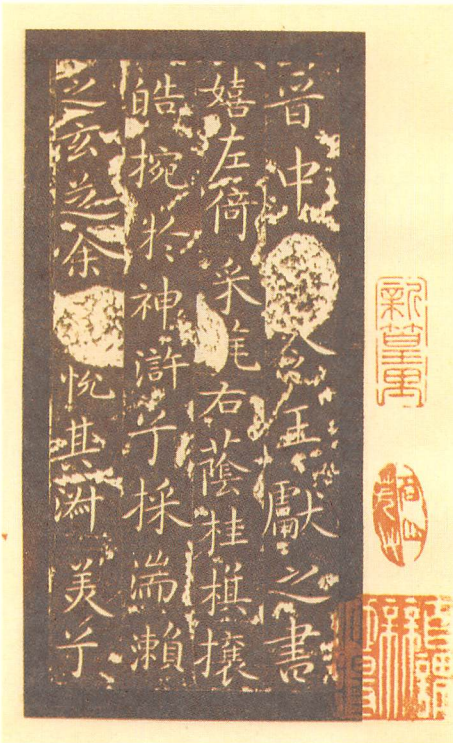 晋中令王獻之書
嬉左倚采旄右蔭桂棋攘
皓捥於神滸兮採湍瀨
之玄芝余悅其淑美兮